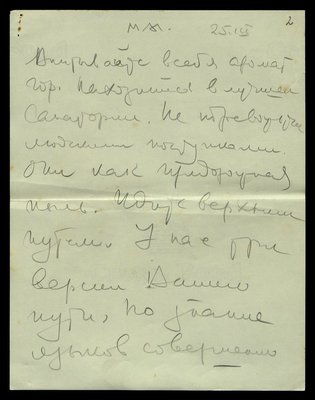 М.М. 25.III 2
Впитывайте в себя аромат
гор. Находитесь в лучшем
Санатории. Не тревожьтесь
людскими поступками.
Они как придорожная
пыль. Идите верхним
путем. У нас три
версии Вашего
пути, но знание
языков совершенно